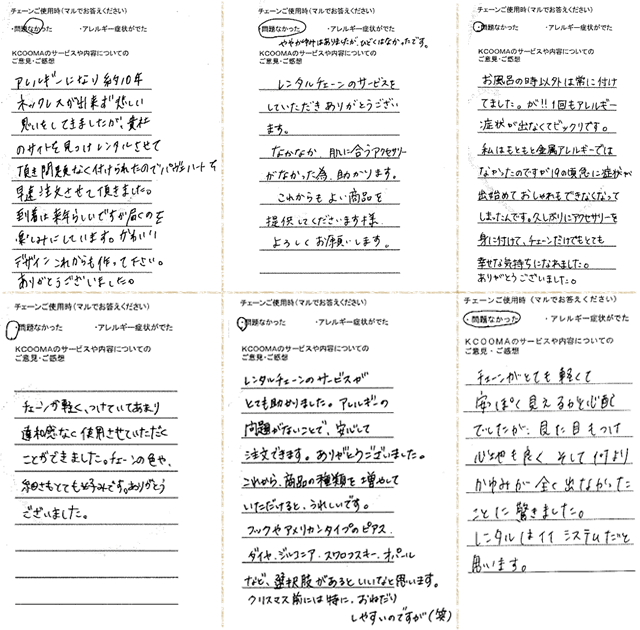 チェーンご使用時(マルでお答えください)
・問題なかった ・アレルギー症状がでた
KCOOMAのサービスや内容についての
ご意見・ご感想
アレルギーになり約10年
ネックレスが出来ず悲しい
思いをしてきましたが、貴社
のサイトを見つけレンタルさせて
頂き問題なく付けられたのでパヴェハートを
早速注文させて頂きました。
到着は来年らしいですが届くのを
楽しみにしています。かわいい
デザインこれからも作って下さい。
ありがとうございました。
チェーンご使用時(マルでお答えください)
・問題なかった ・アレルギー症状がでた
やや
はありましたが、ひどくはなかったです。
KCOOMAのサービスや内容についての
ご意見・ご感想
レンタルチェーンのサービスを
していただきありがとうござい
ます。
なかなか、肌に合うアクセサリー
がなかった為、助かります。
これからもよい商品を
提供してくださいます様
よろしくお願いします。
チェーンご使用時(マルでお答えください)
・問題なかった ・アレルギー症状がでた
KCOOMAのサービスや内容についての
ご意見・ご感想
お風呂の時以外は常に付け
てました。が!!1回もアレルギー
症状が出なくてビックリです。
私はもともと金属アレルギーでは
なかったのですが19の頃急に症状が
出始めておしゃれもできなくなって
しまったんです。久しぶりにアクセサリーを
身に付けて、チェーンだけでもとても
幸せな気持ちになれました。
ありがとうございました。
チェーンご使用時(マルでお答えください)
・問題なかった ・アレルギー症状がでた
KCOOMAのサービスや内容についての
ご意見・ご感想
チェーンが軽く、つけていてあまり
違和感なく使用させていただく
ことができました。チェーンの色や、
細さもとても好みです。ありがとう
ございました。
チェーンご使用時(マルでお答えください)
・問題なかった ・アレルギー症状がでた
KCOOMAのサービスや内容についての
ご意見・ご感想
レンタルチェーンのサービスが
とても助かりました。アレルギーの
問題がないことで、安心して
注文できます。ありがとうございました。
これから、商品の種類を増やして
いただけると、うれしいです。
フックやアメリカンタイプのピアス
ダイヤ、ジルコニア、スワロフスキー、オパール
など、選択肢があるといいなと思います。
クリスマス前には特に、おねだり
しやすいのですが(笑)
チェーンご使用時(マルでお答えください)
・問題なかった ・アレルギー症状がでた
KCOOMAのサービスや内容についての
ご意見・ご感想
チェーンがとても軽くて
安っぽく見えるかと心配
でしたが、見た目もつけ
心地も良く そして何より
かゆみが全く出なかった
ことに驚きました。
レンタルはイイシステムだと
思います。